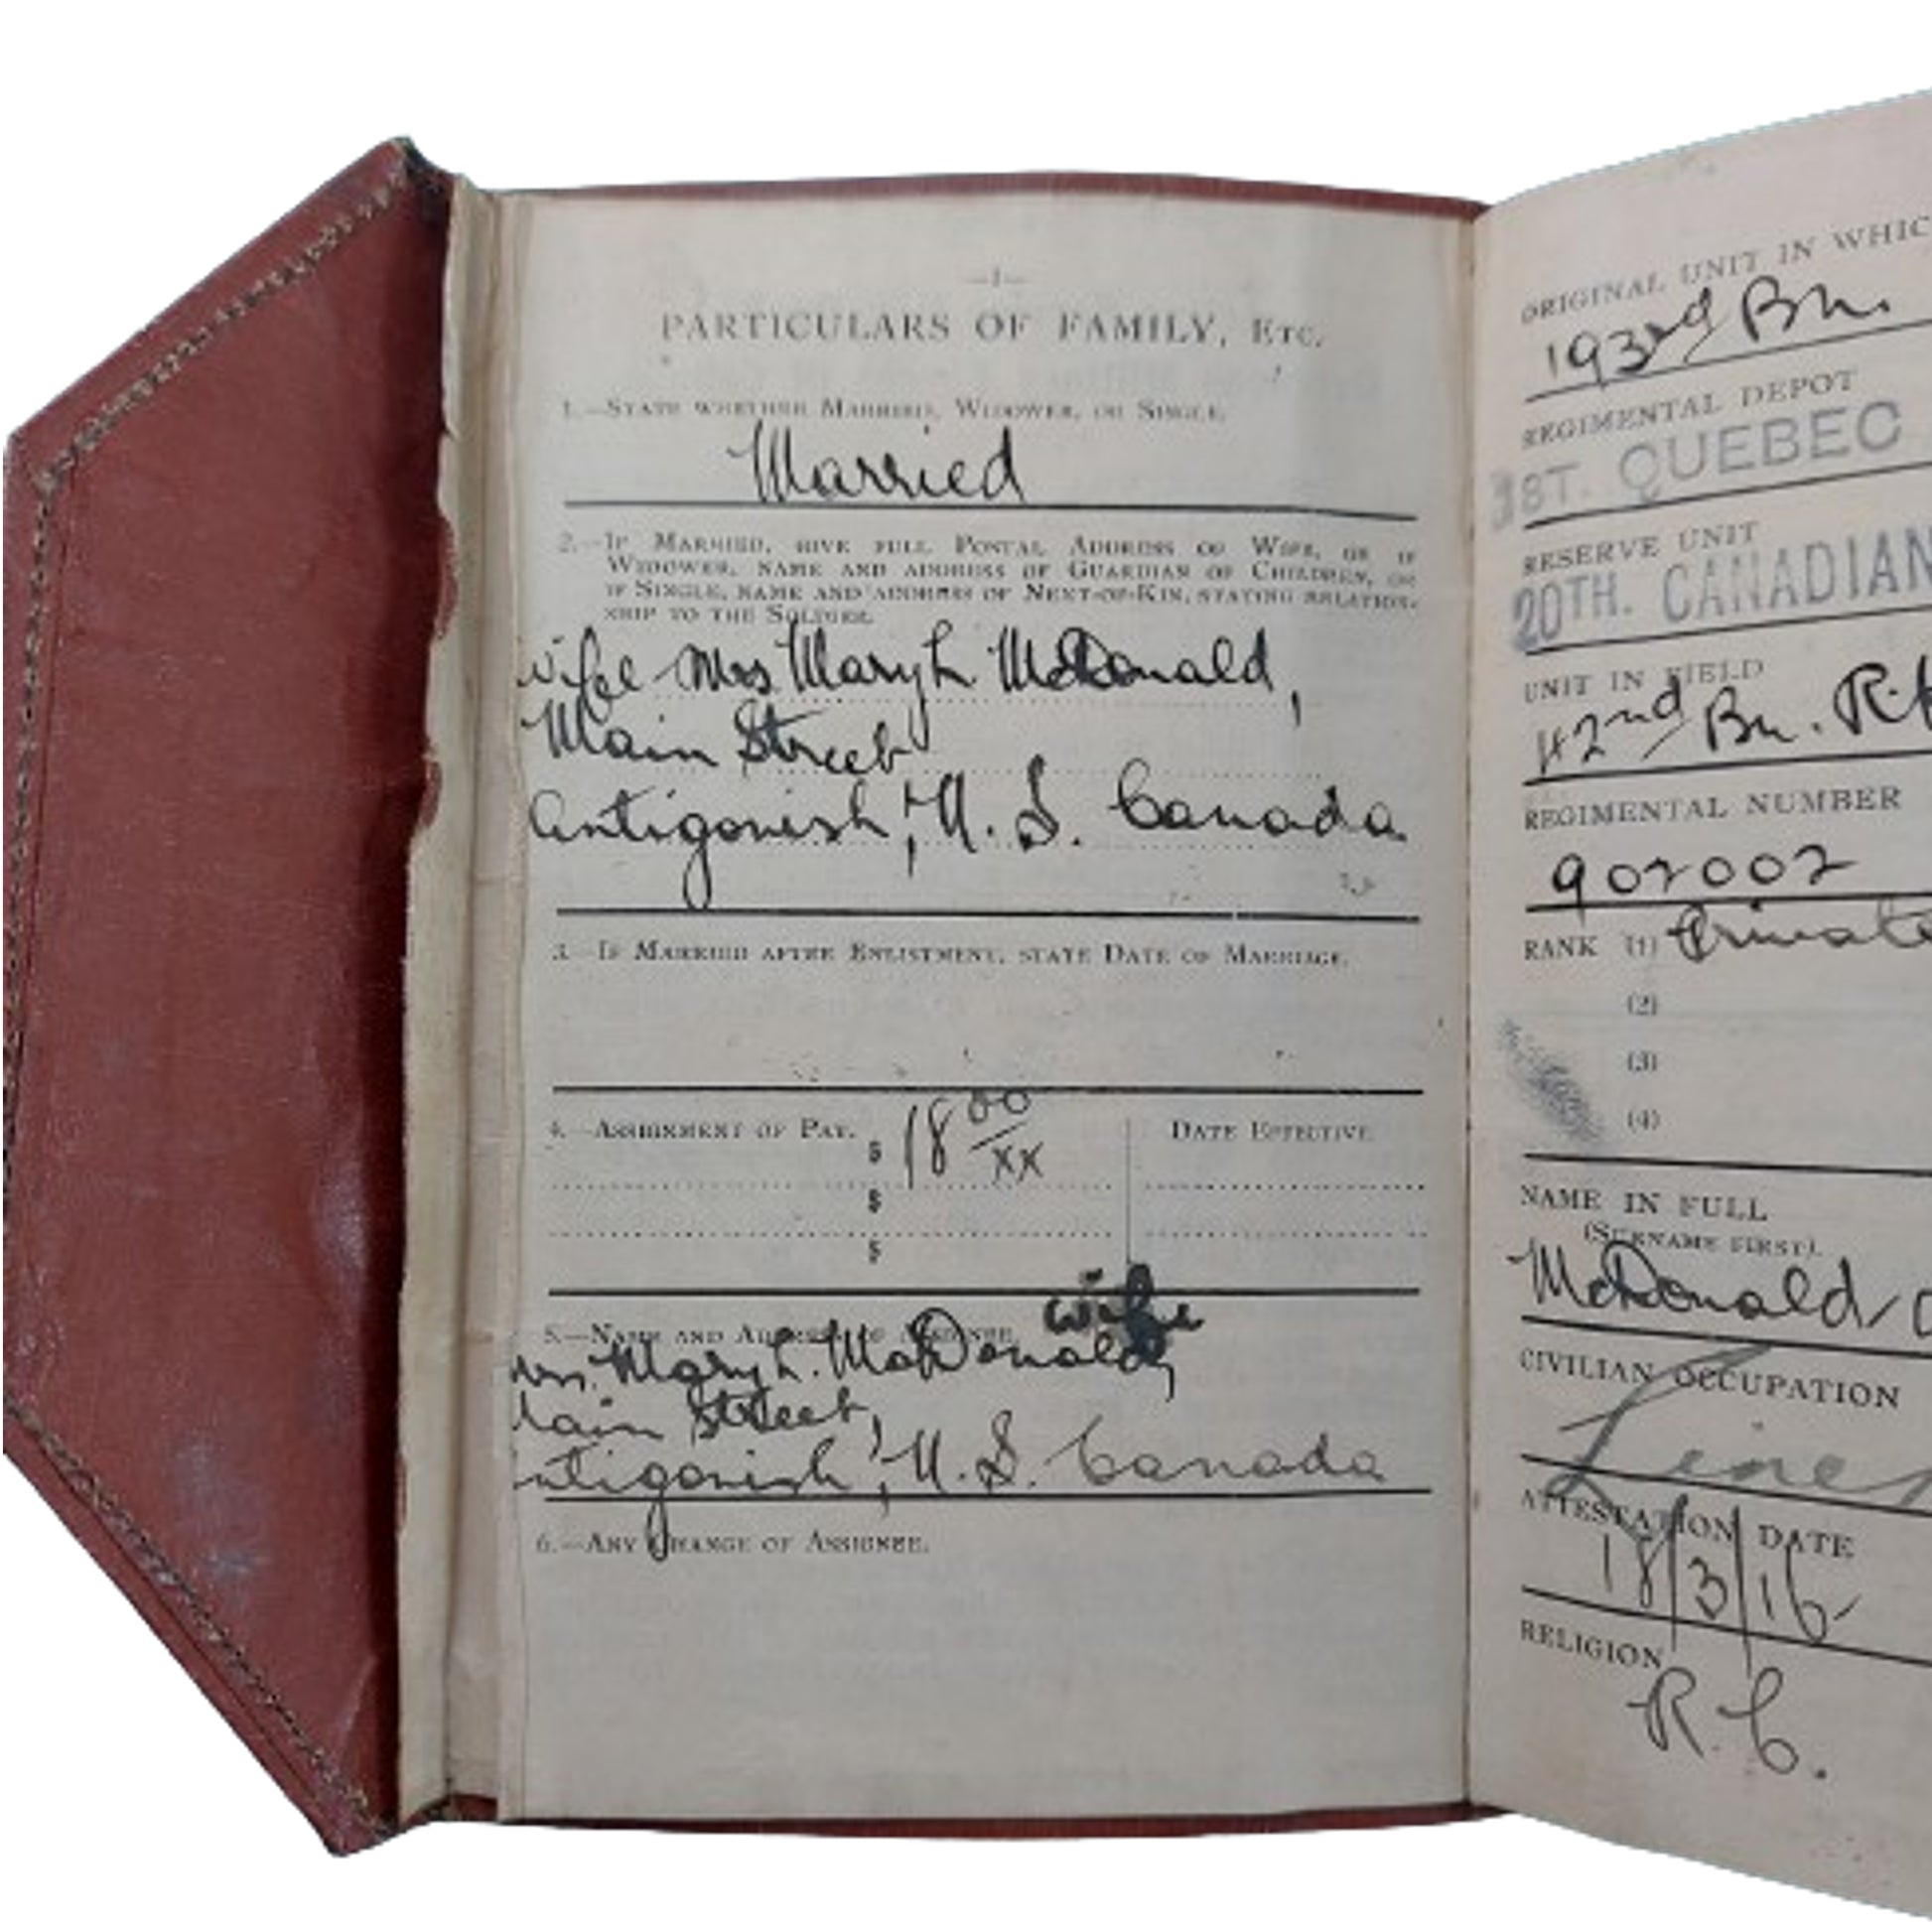 —1—
PARTICULARS OF FAMILY, ETC.
1.—STATE WHETHER MARRIED, WIDOWER, OR SINGLE.
Married
2.—IF MARRIED, GIVE FULL POSTAL ADDRESS OF WIFE, OR IF
WIDOWER, NAME AND ADDRESS OF GUARDIAN OF CHILDREN, OR
IF SINGLE, NAME AND ADDRESS OF NEXT-OF-KIN, STATING RELATION-
SHIP TO THE SOLDIER.
wife Mrs Mary L. McDonald,
Main Street
Antigonish, N. S. Canada
3.—IF MARRIED AFTER ENLISTMENT, STATE DATE OF MARRIAGE.
4.—ASSIGNMENT OF PAY. $ 18 00/xx DATE EFFECTIVE
$
$
5.—NAME AND ADDRESS OF ASSIGNEE. wife
Mrs. Mary L. McDonald,
Main Street,
Antigonish, N. S. Canada
6.—ANY CHANGE OF ASSIGNEE.
ORIGINAL UNIT IN WHIC
193rd Bn.
REGIMENTAL DEPOT
1ST. QUEBEC
RESERVE UNIT
20TH. CANADIAN
UNIT IN FIELD
42nd Bn. R.H
REGIMENTAL NUMBER
902002
RANK (1) Private
(2)
(3)
(4)
NAME IN FULL
(SURNAME FIRST).
McDonald,
CIVILIAN OCCUPATION
ATTESTATION DATE
18/3/16
RELIGION
R. C.